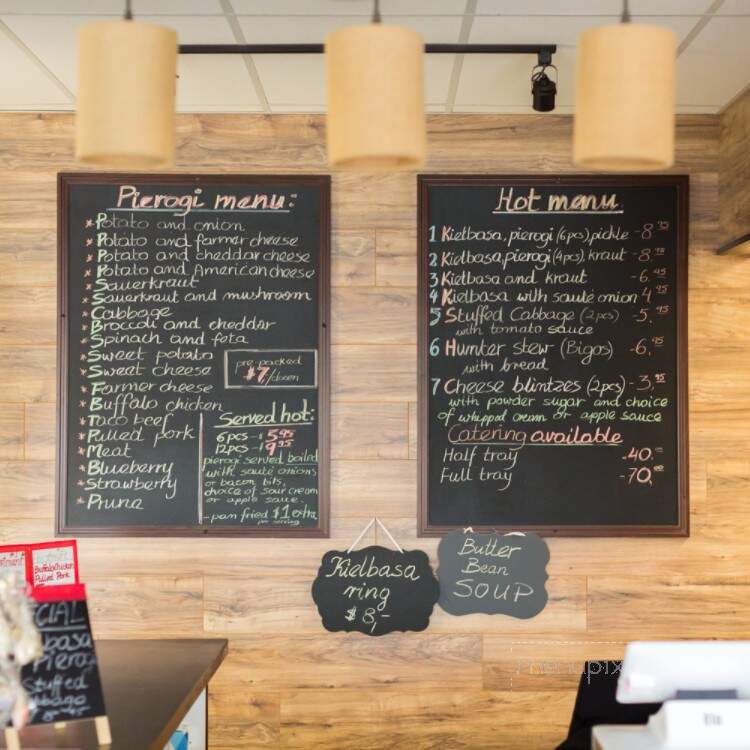 Pierogi menu:
* Potato and onion
* Potato and farmer cheese
* Potato and cheddar cheese
* Potato and American cheese
* Sauerkraut
* Sauerkraut and mushroom
* Cabbage
* Broccoli and cheddar
* Spinach and feta
* Sweet potato
* Sweet cheese
* Farmer cheese
* Buffalo chicken
* Taco beef
* Pulled pork
* Meat
* Blueberry
* Strawberry
* Pruna
pre-packed
$7/dozen
Served hot:
6pcs - $5.95
12pcs - $9.95
pierogi served boiled
with sauté onions
or bacon bits,
choice of sour cream
or apple sauce.
- pan fried $1 extra
per serving
Hot menu
1 Kielbasa, pierogi (6pcs), pickle - 8.95
2 Kielbasa, pierogi (4pcs), kraut - 8.95
3 Kielbasa and kraut - 6.95
4 Kielbasa with sauté onion 4.95
5 Stuffed Cabbage (2pcs) - 5.95
with tomato sauce
6 Hunter stew (Bigos) - 6.95
with bread
7 Cheese blintzes (2pcs) - 3.95
with powder sugar and choice
of whipped cream or apple sauce
Catering available
Half tray - 40.-
Full tray - 70.-
Kielbasa
ring
$8,-
Butter
Bean
SOUP
Buffalo Chicken
Pulled Pork
CIAL
basa
Pierogi
Stuffed
menupix